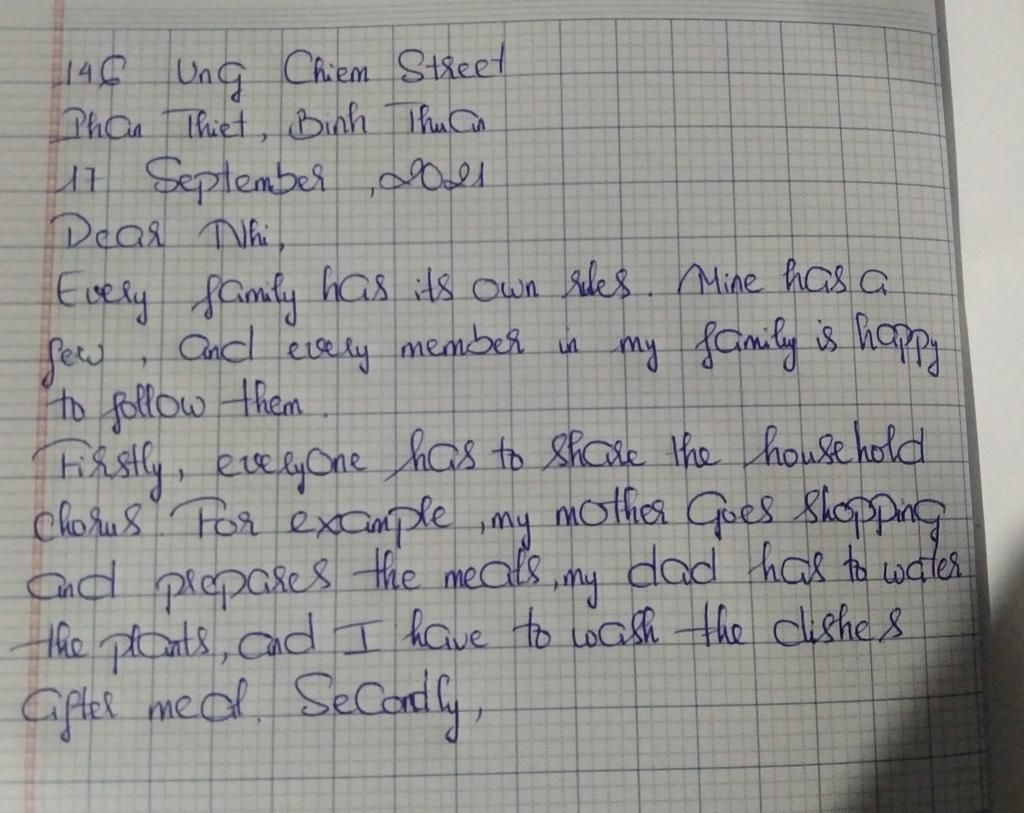 146 Ung Chiem Street
Phan Thiet, Binh Thuan
17 September, 2021
Dear Nhi,
Every family has its own rules. Mine has a
few, and every member in my family is happy
to follow them.
Firstly, everyone has to share the household
chorus. For example, my mother goes shopping
and prepares the meals, my dad has to water
the plants, and I have to wash the dishes
after meal. Secondly,